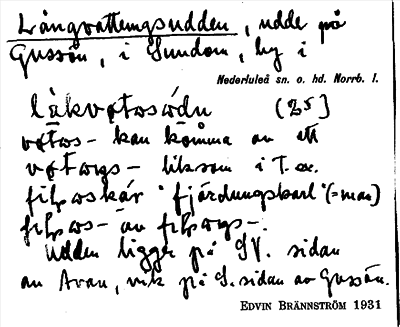 Långvattungsudden, udde på
Gussön, i Sundom, by i
Nederluleå sn. o. hd. Norrb. l.
låkvøtwsödn (25)
vøtws- kan komma av ett
vøtwŋs- liksom i T. ex.
fihwskár "fjärdungskarl" (=mas)
fihws- av fihwŋs-.
Udden ligger på SV. sidan
av Avan, vik på S. sidan av Gussön.
EDVIN BRÄNNSTRÖM 1931